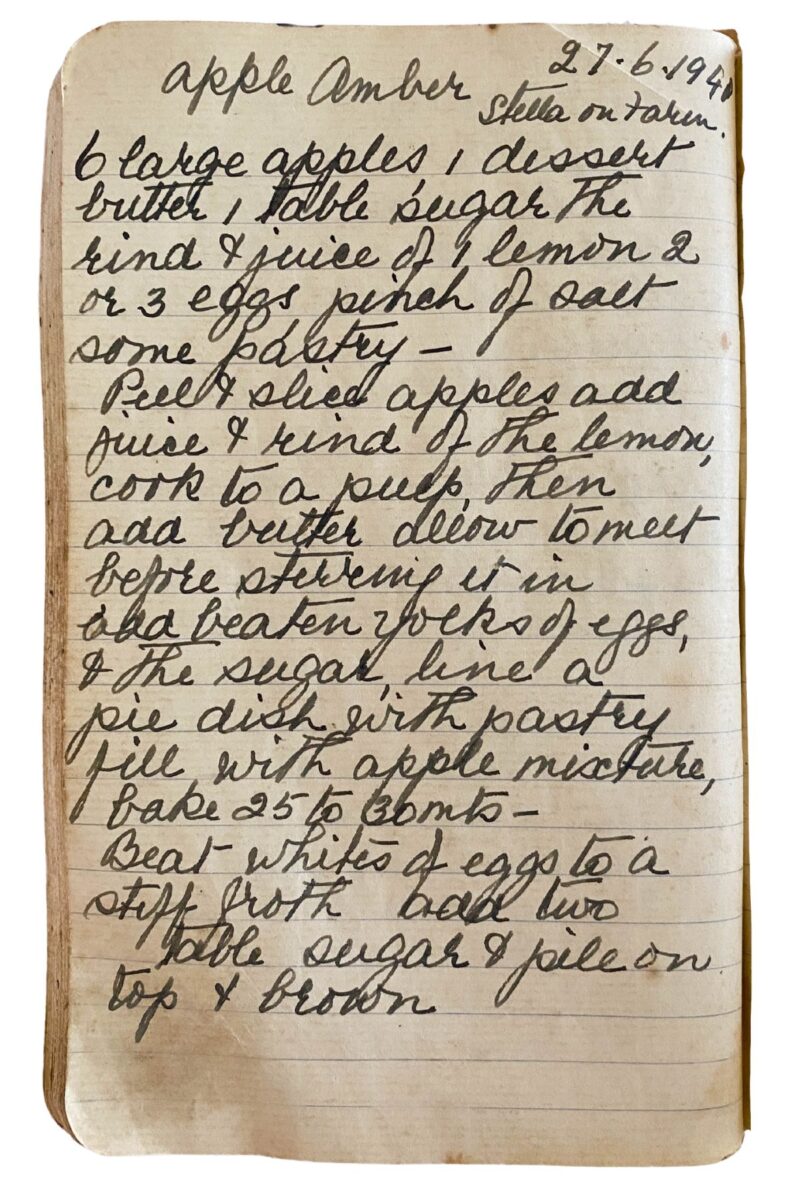 27.6.1940
apple Amber
Stella on Farm.
6 large apples 1 dessert
butter 1 table sugar The
rind & juice of 1 lemon 2
or 3 eggs pinch of salt
some pastry –
Peel & slice apples add
juice & rind of the lemon,
cook to a pulp, then
add butter allow to melt
before stirring it in
add beaten yolks of eggs,
& the sugar, line a
pie dish with pastry
fill with apple mixture,
bake 25 to 30 mts –
Beat whites of eggs to a
stiff froth add two
table sugar & pile on
top & brown